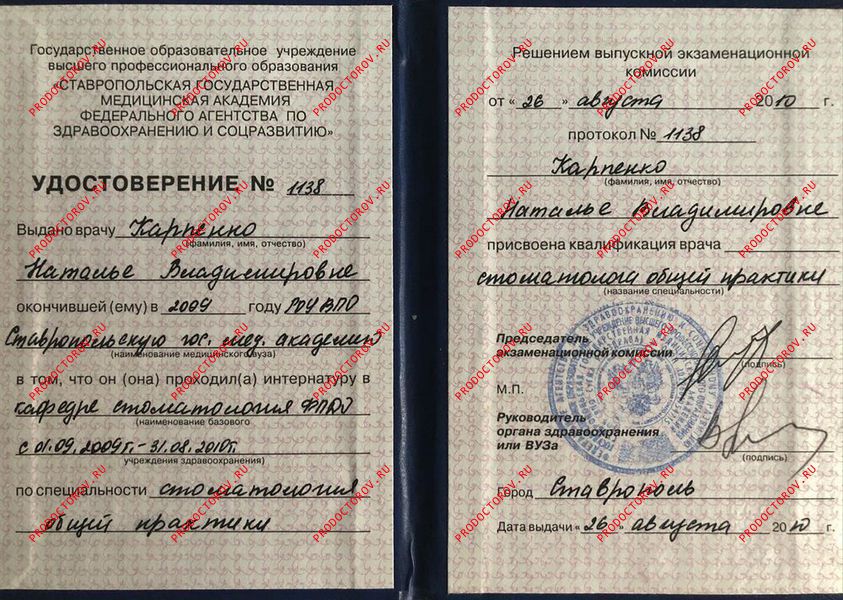 Государственное образовательное учреждение
высшего профессионального образования
«СТАВРОПОЛЬСКАЯ ГОСУДАРСТВЕННАЯ
МЕДИЦИНСКАЯ АКАДЕМИЯ
ФЕДЕРАЛЬНОГО АГЕНТСТВА ПО
ЗДРАВООХРАНЕНИЮ И СОЦРАЗВИТИЮ»
УДОСТОВЕРЕНИЕ № 1138
Выдано врачу Карпенко
(фамилия, имя, отчество)
Наталье Владимировне
окончившей (ему) в 2009 году ГОУ ВПО
Ставропольскую гос. мед. академию
(наименование медицинского вуза)
в том, что он (она) проходил(а) интернатуру в
кафедре стоматологии ФПДО
(наименование базового
с 01.09.2009г.- 31.08.2010г.
учреждения здравоохранения)
по специальности стоматология
общей практики
Решением выпускной экзаменационной
комиссии
от « 26 » августа 2010 г.
протокол № 1138
Карпенко
(фамилия, имя, отчество)
Наталье Владимировне
присвоена квалификация врача
стоматолога общей практики
(название специальности)
Председатель
экзаменационной комиссии
(подпись)
М.П.
Руководитель
органа здравоохранения
или ВУЗа
(подпись)
Город Ставрополь
Дата выдачи « 26 » августа 2010 г.
PRODOCTOROV.RU